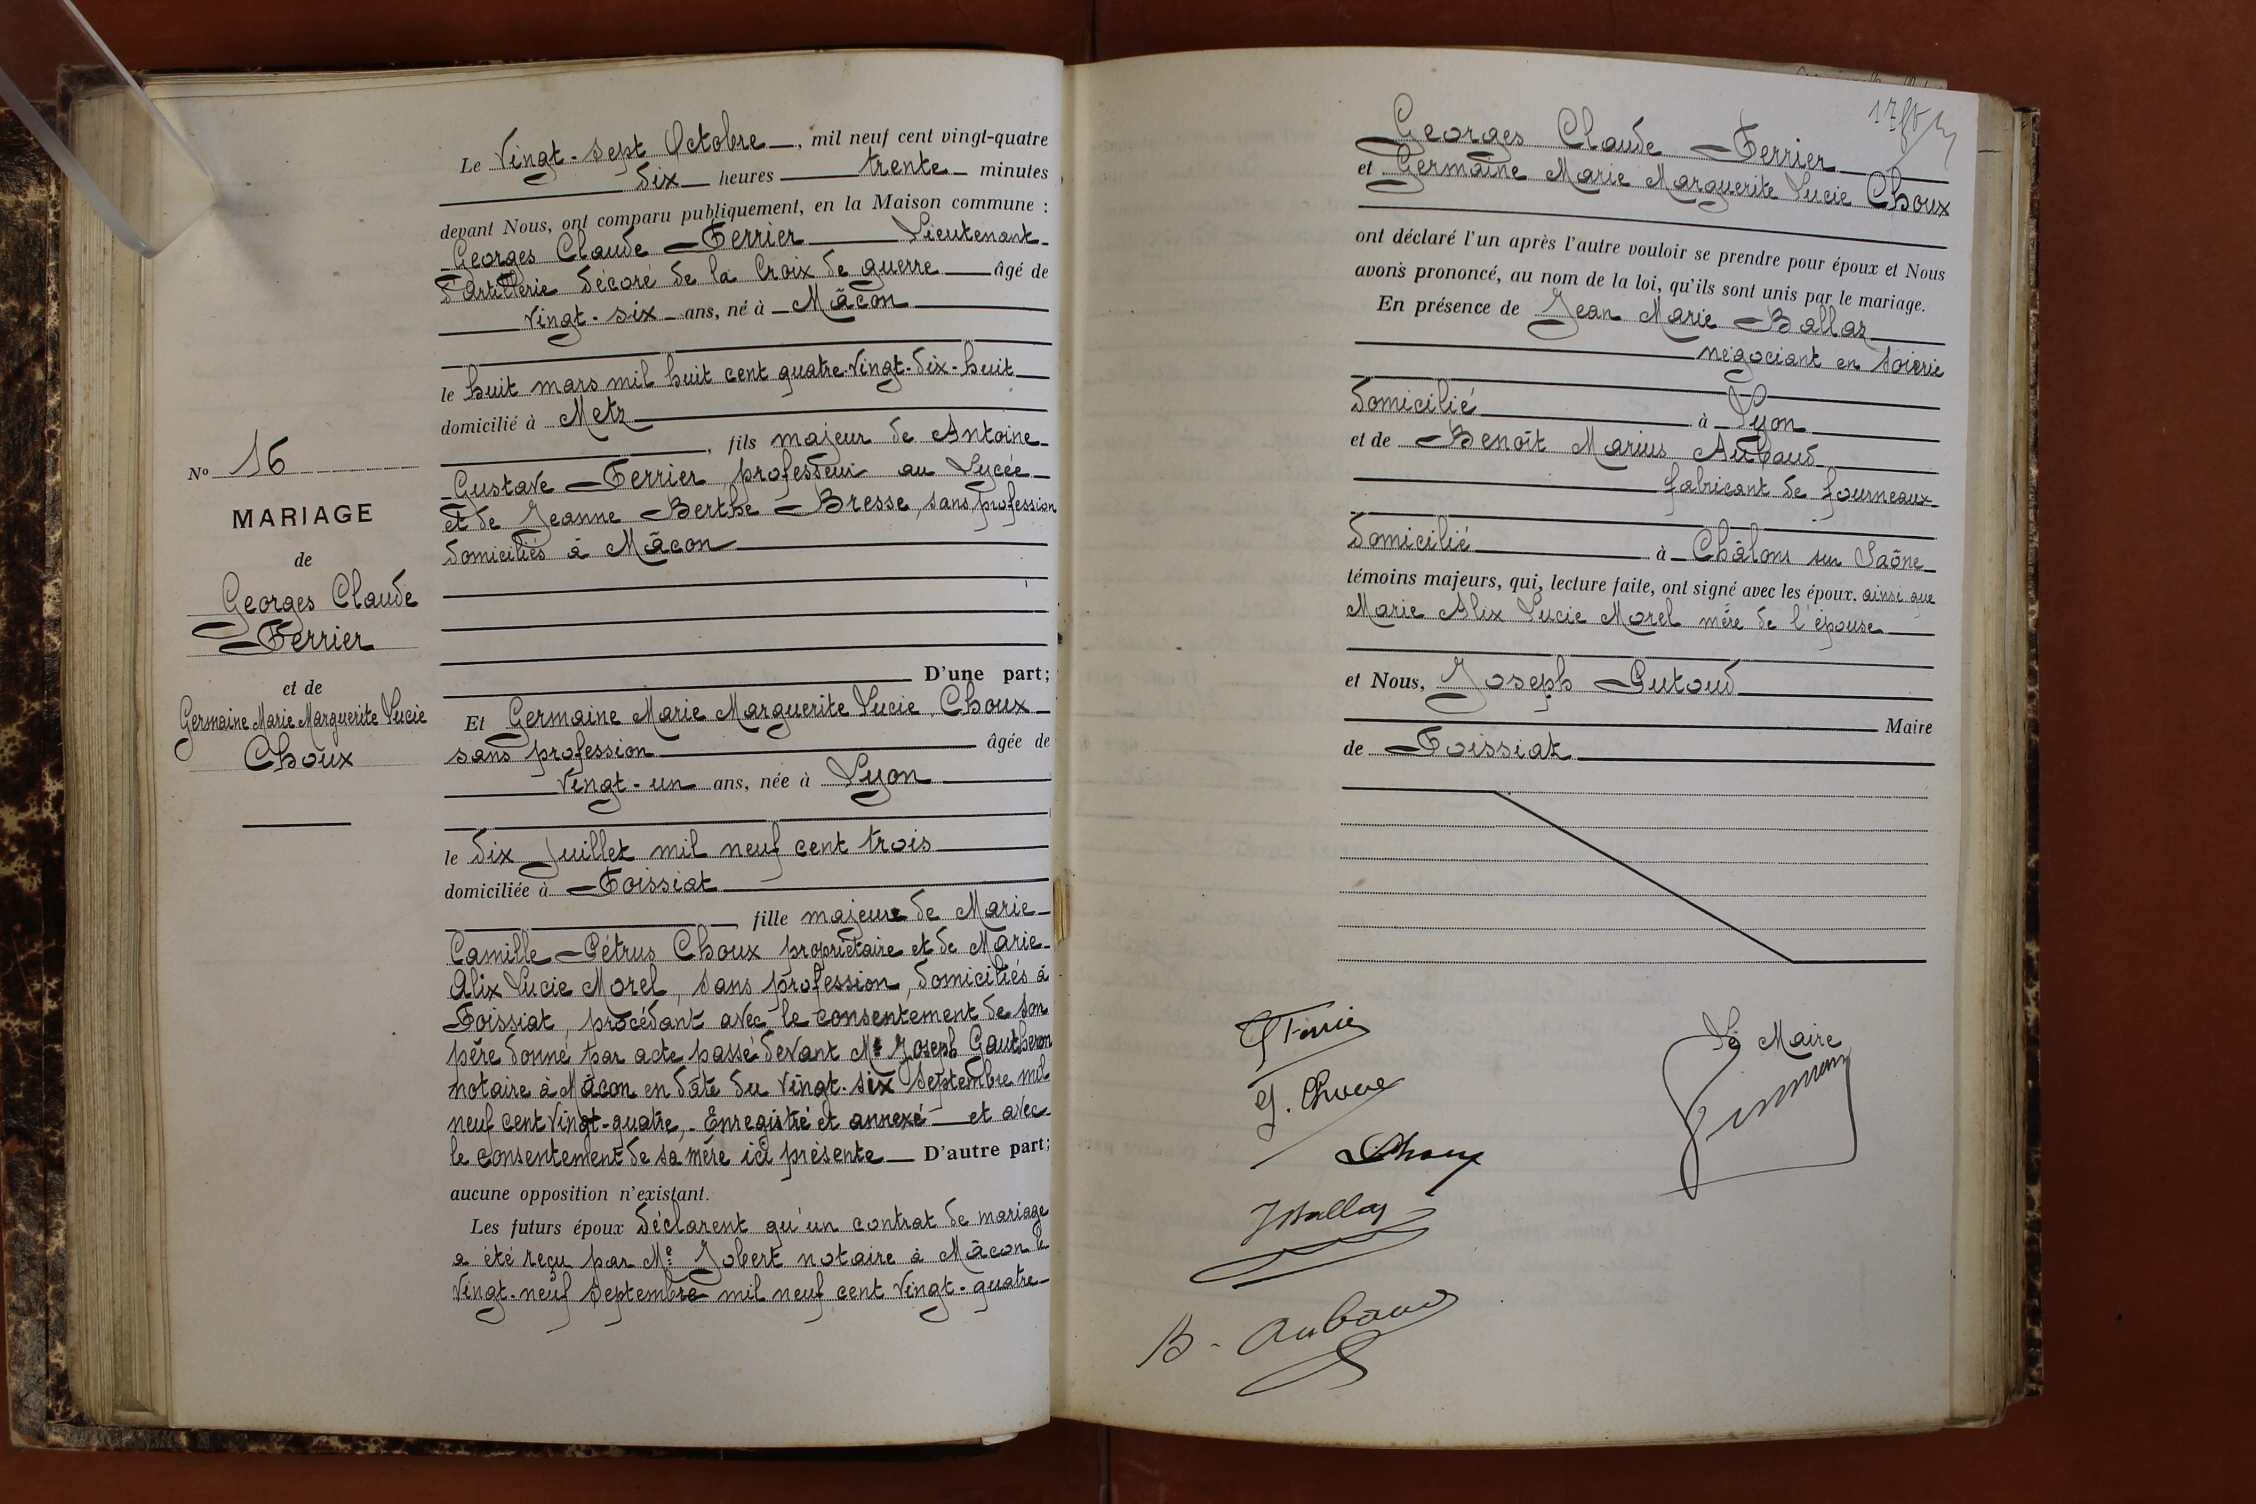 Le Vingt-sept Octobre, mil neuf cent vingt-quatre
dix heures trente minutes
devant Nous, ont comparu publiquement, en la Maison commune :
Georges Claude Ferrier Lieutenant
d'Artillerie décoré de la Croix de guerre âgé de
vingt-six ans, né à Mâcon
le huit mars mil huit cent quatre-vingt-dix-huit
domicilié à Metz
, fils majeur de Antoine
Gustave Ferrier, professeur au Lycée
et de Jeanne Berthe Bresse, sans profession
domiciliés à Mâcon
D'une part;
Nº 16
MARIAGE
de
Georges Claude
Ferrier
et de
Germaine Marie Marguerite Lucie
Choux
Et Germaine Marie Marguerite Lucie Choux
sans profession âgée de
vingt-un ans, née à Lyon
le dix Juillet mil neuf cent trois
domiciliée à Foissiat
fille majeure de Marie
Camille Pétrus Choux propriétaire et de Marie
Alix Lucie Morel, sans profession, domiciliés à
Foissiat, procédant avec le consentement de son
père donné par acte passé devant Me Joseph Gautheron
notaire à Mâcon en date du vingt-six Septembre mil
neuf cent vingt-quatre, - Enregistré et annexé et avec
le consentement de sa mère ici présente D'autre part;
aucune opposition n'existant.
Les futurs époux déclarent qu'un contrat de mariage
a été reçu par Me Jobert notaire à Mâcon le
vingt-neuf Septembre mil neuf cent vingt-quatre
Georges Claude Ferrier
et Germaine Marie Marguerite Lucie Choux
ont déclaré l'un après l'autre vouloir se prendre pour époux et Nous
avons prononcé, au nom de la loi, qu'ils sont unis par le mariage.
En présence de Jean Marie Ballaz
négociant en soierie
domicilié à Lyon
et de Benoît Marius Aubaud
fabricant de fourneaux
domicilié à Châlons sur Saône
témoins majeurs, qui, lecture faite, ont signé avec les époux. ainsi que
Marie Alix Lucie Morel mère de l'épouse
et Nous, Joseph Putoud
Maire
de Foissiat
G Ferrier
Le Maire
G. Choux
Choux
J Ballaz
B. Aubaud